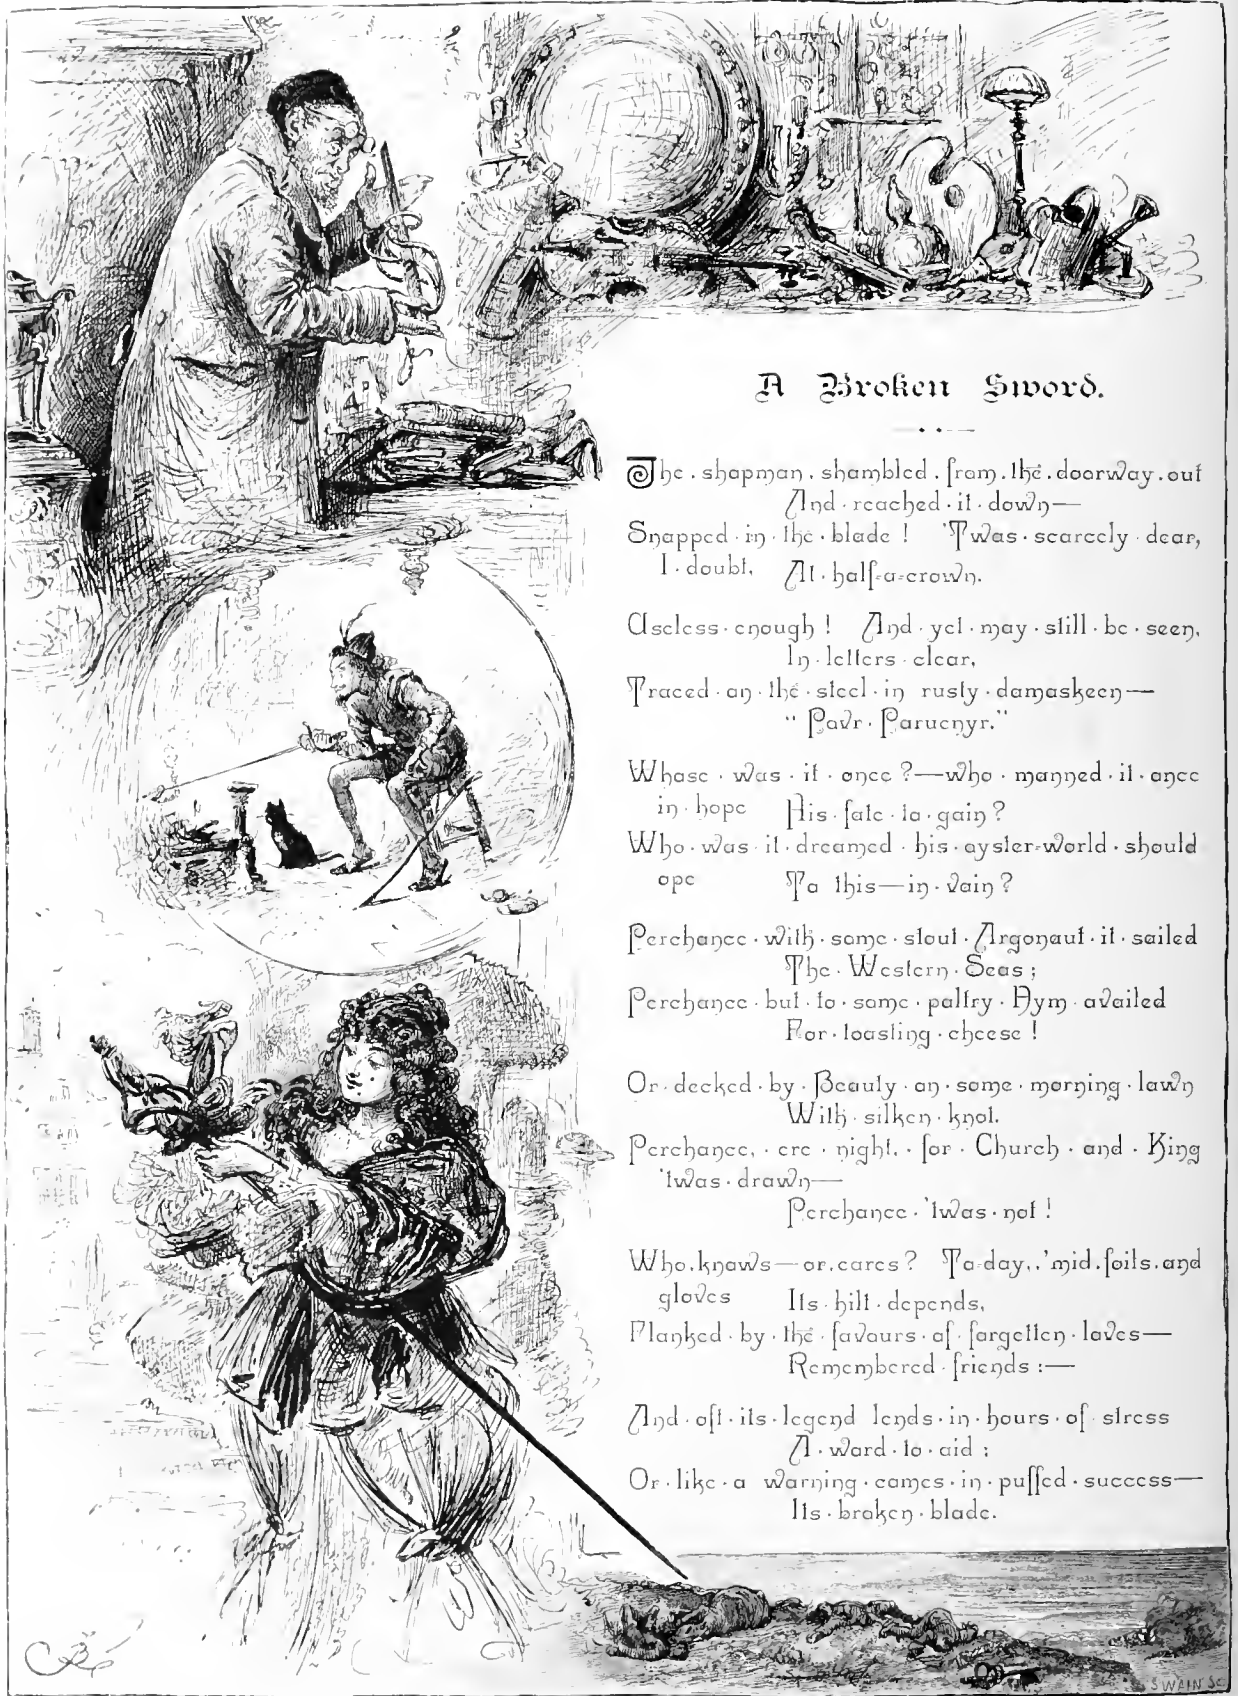 A Broken Sword.
The shopman shambled from the doorway out
And reached it down—
Snapped in the blade ! 'Twas scarcely dear,
I doubt, At half-a-crown.
Useless enough ! And yet may still be seen,
In letters clear,
Traced on the steel in rusty damaskeen—
" Povr Paruenyr."
Whose was it once ?—who manned it once
in hope His fate to gain ?
Who was it dreamed his oyster-world should
ope To this—in vain ?
Perchance with some stout Argonaut it sailed
The Western Seas ;
Perchance but to some paltry Nym availed
For toasting cheese !
Or decked by Beauty on some morning lawn
With silken knot,
Perchance, ere night, for Church and King
'twas drawn—
Perchance 'twas not !
Who knows—or cares ? To-day, 'mid foils and
gloves Its hilt depends,
Flanked by the favours of forgotten loves—
Remembered friends :—
And oft its legend lends in hours of stress
A word to aid ;
Or like a warning comes in puffed success—
Its broken blade.
SWAIN Sc